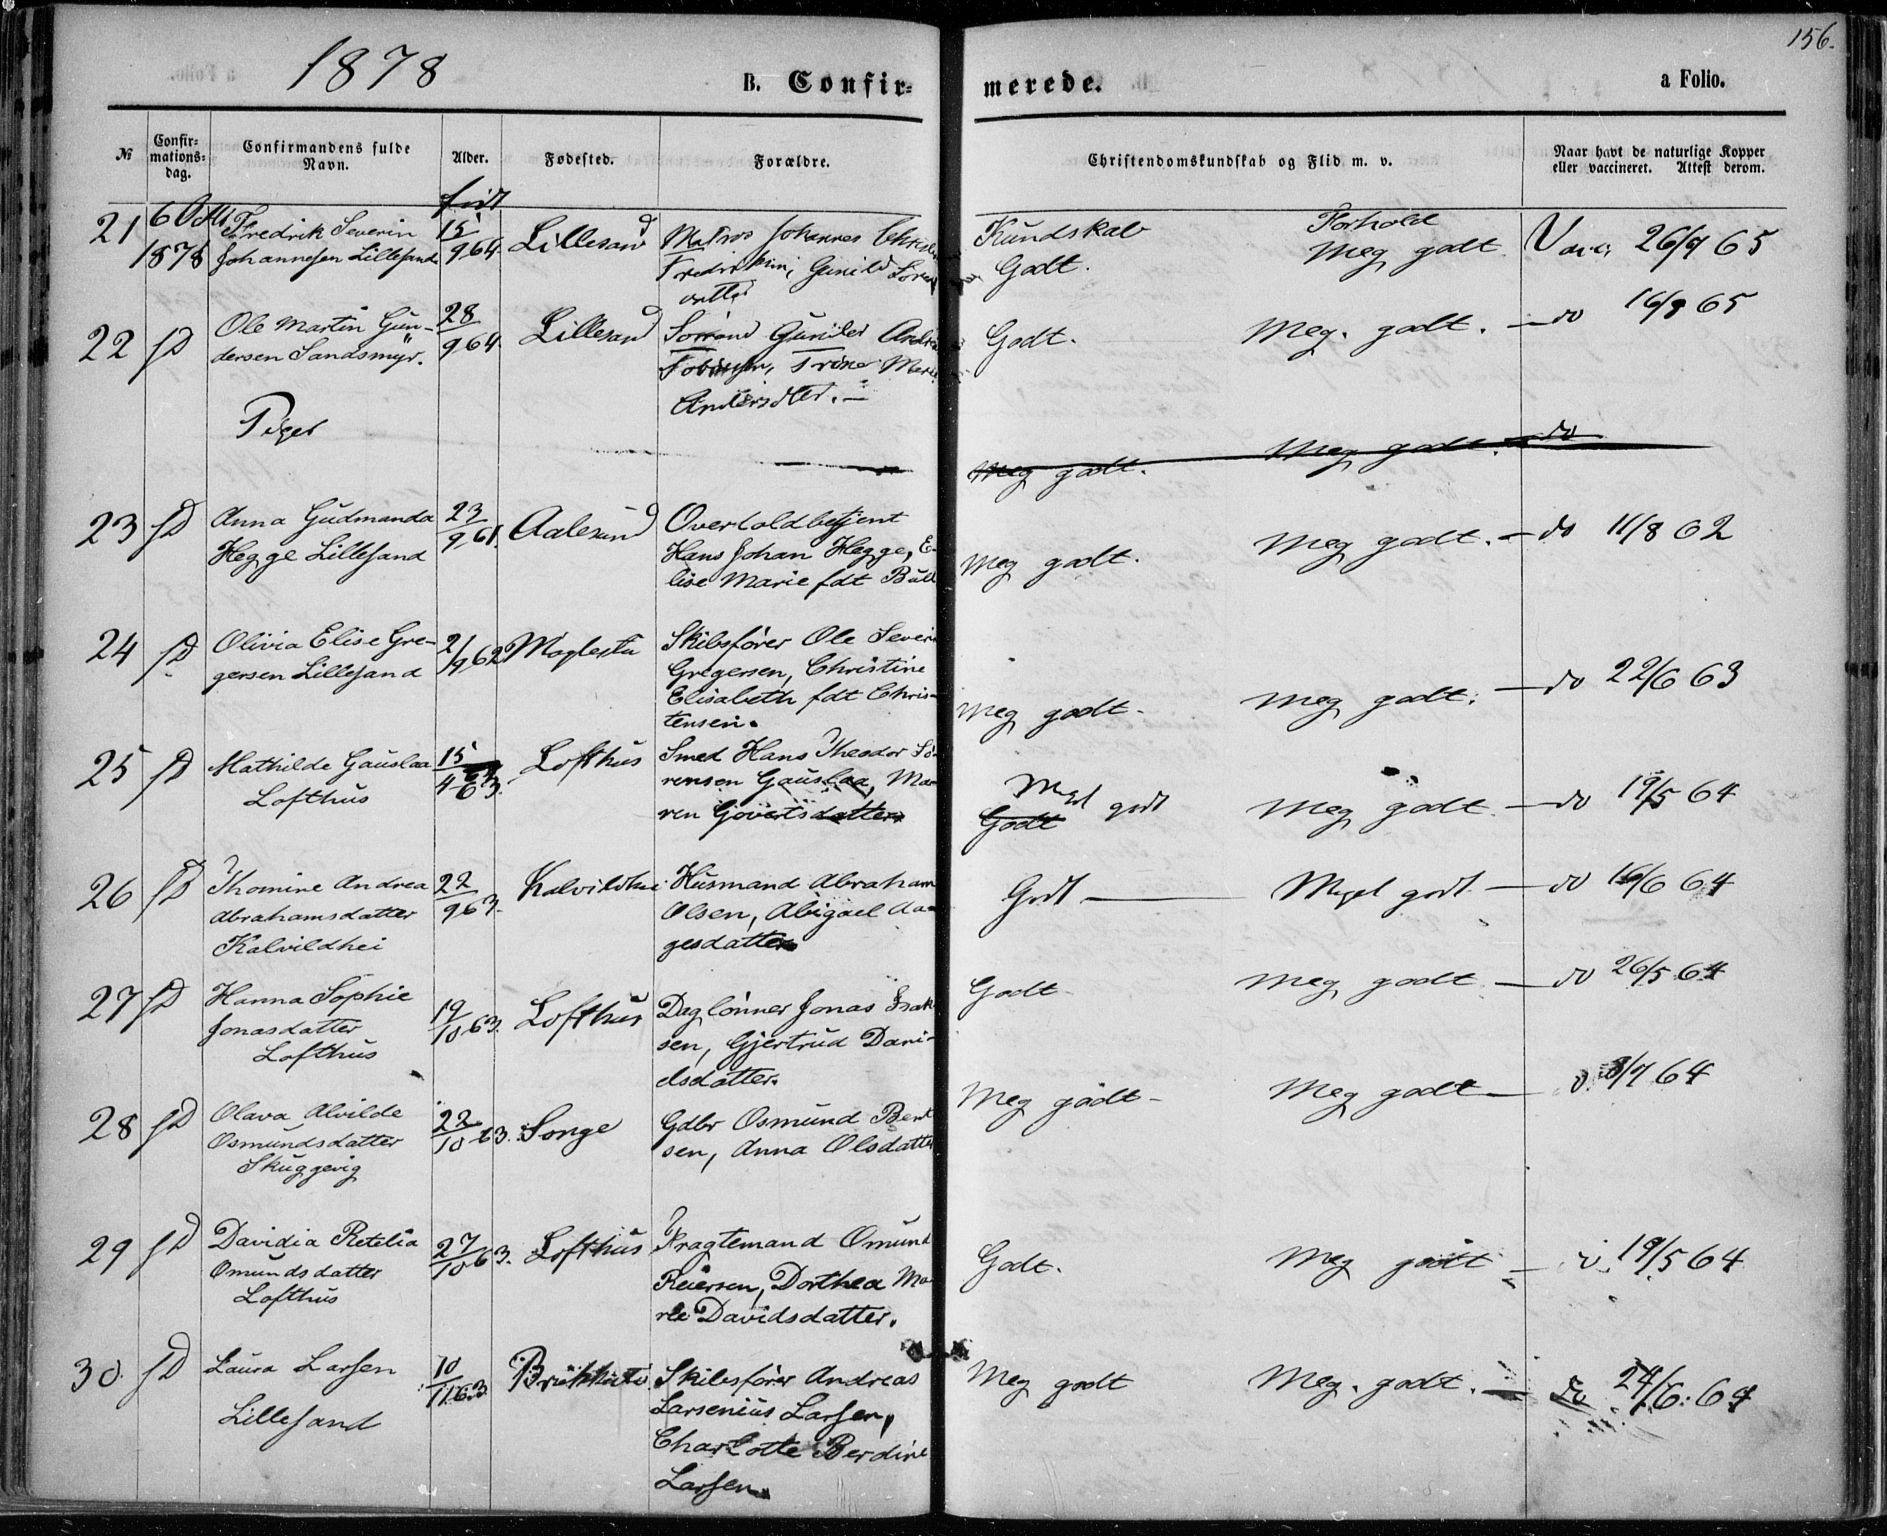 156.
1878
B. Confir=
merede.
a Folio.
№
Confir=
mations=
dag.
Confirmandens fulde
Navn.
Alder.
Fødested.
Forældre.
Christendomskundskab og Flid m. v.
Naar havt de naturlige Kopper
eller vaccineret. Attest derom.
født
21
6 Okt
1878
Fredrik Severin
Johannesen Lillesand
15/9 64.
Lillesand
Matros Johannes
Gunild
Kundskab
Godt.
Forhold
Meg godt
Vacc 26/9 65
22
sD
Ole Martin Gun-
dersen Sandsmyr.
28/9 64.
Lillesand
Gunder
Andersdtr. —
Godt.
Meg. godt. — do 16/9 65
Piger
Meg godt.
Meg godt. — do
23
sD
Anna Gudmanda
Hegge Lillesand
23/9 61.
Aalesund
Overtoldbetjent
Hans Johan Hegge, E-
lise Marie fdt Bull
Meg godt.
Meg godt. — do 11/8 62
24
sD
Olivia Elise Gre-
gersen Lillesand
2/9 62
Moglestu
Skibsfører Ole Severin
Gregersen, Christine
Elisabeth fdt Chris-
tensen.
Meg godt.
Meg godt. — do 22/6 63
25
sD
Mathilde Gauslaa
Lofthus
15/4 63.
Lofthus
Smed Hans Theodor Sö-
rensen Gauslaa, Ma-
ren Govertsdatter
Meget godt
Godt
Meg godt. — do 19/5 64
26
sD
Thomine Andrea
Abrahamsdatter
Kalvildhei
22/9 63.
Kalvildhei
Husmand Abraham
Olsen, Abigael Aa-
gesdatter
Godt —
Meget godt — do 16/6 64
27
sD
Hanna Sophie
Jonasdatter
Lofthus
19/10 63.
Lofthus
Daglönner Jonas Isak-
sen, Gjertrud Dani-
elsdatter.
Godt
Meg godt — do 26/5 64
28
sD
Olava Alvilde
Osmundsdatter
Skuggevig
22/10 63.
Songe
Gdbr Osmund Bent
sen, Anna Olsdatter
Meg godt -
Meg godt — 64
29
sD
Davidia Retelia
Omundsdatter
Lofthus
27/10 63.
Lofthus
Fragtemand Omund
Reiersen, Dorthea Ma-
rie Davidsdatter.
Godt.
Meg godt — 19/5 64
30.
sD
Laura Larsen
Lillesand
10/11 63
Skibsfører Andreas
Larsenius Larsen,
Charlotte Berdine
Larsen
Meg godt
Meg. godt. — do 24/6. 64